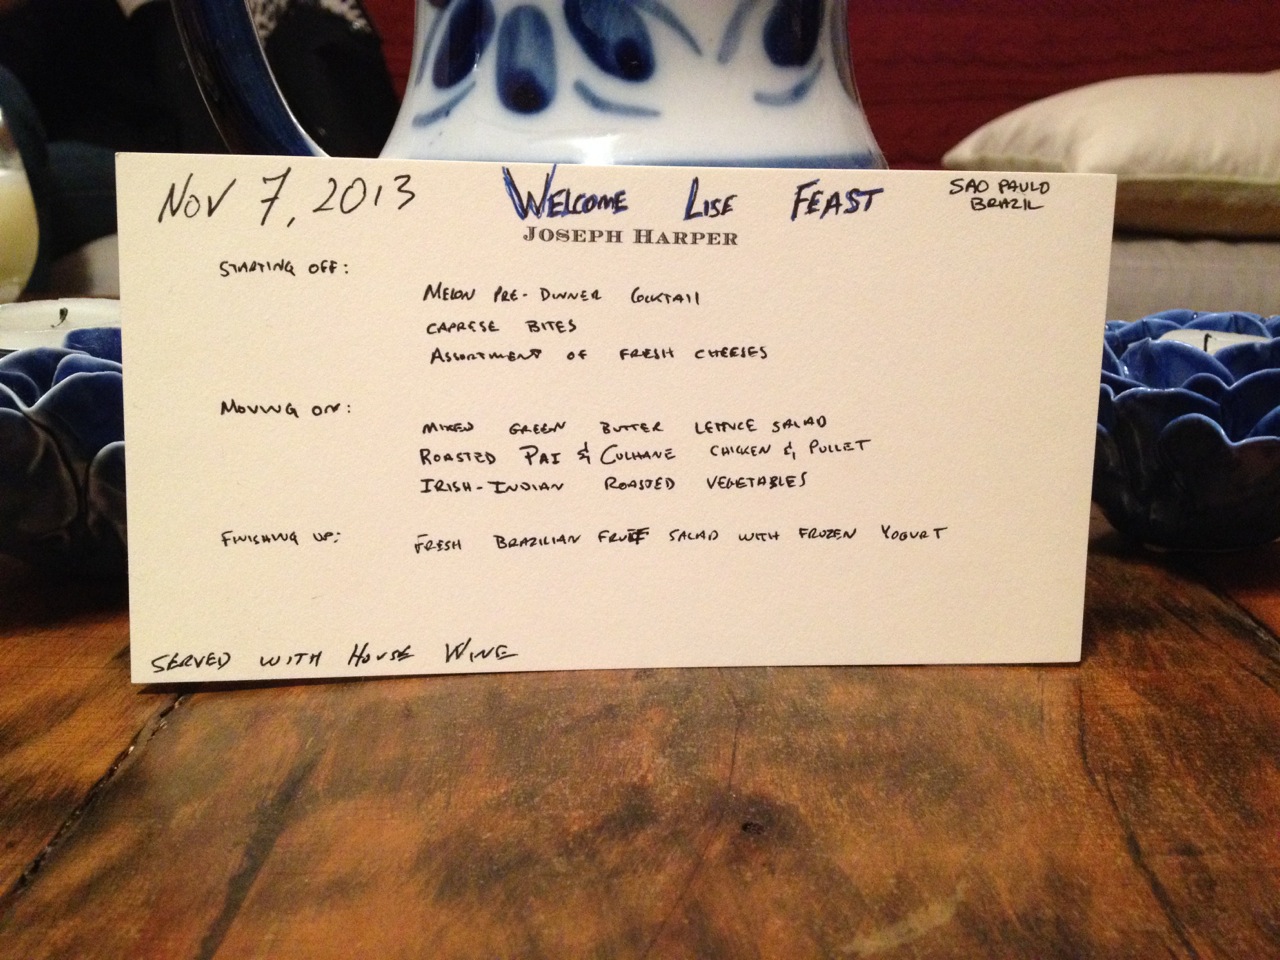 Nov 7, 2013
WELCOME LISE FEAST
SAO PAULO
BRAZIL
JOSEPH HARPER
STARTING OFF:
MELON PRE-DINNER COCKTAIL
CAPRESE BITES
ASSORTMENT OF FRESH CHEESES
MOVING ON:
MIXED GREEN BUTTER LETTUCE SALAD
ROASTED PAI & CULHANE CHICKEN & PULLET
IRISH-INDIAN ROASTED VEGETABLES
FINISHING UP: FRESH BRAZILIAN FRUIT SALAD WITH FROZEN YOGURT
SERVED WITH HOUSE WINE